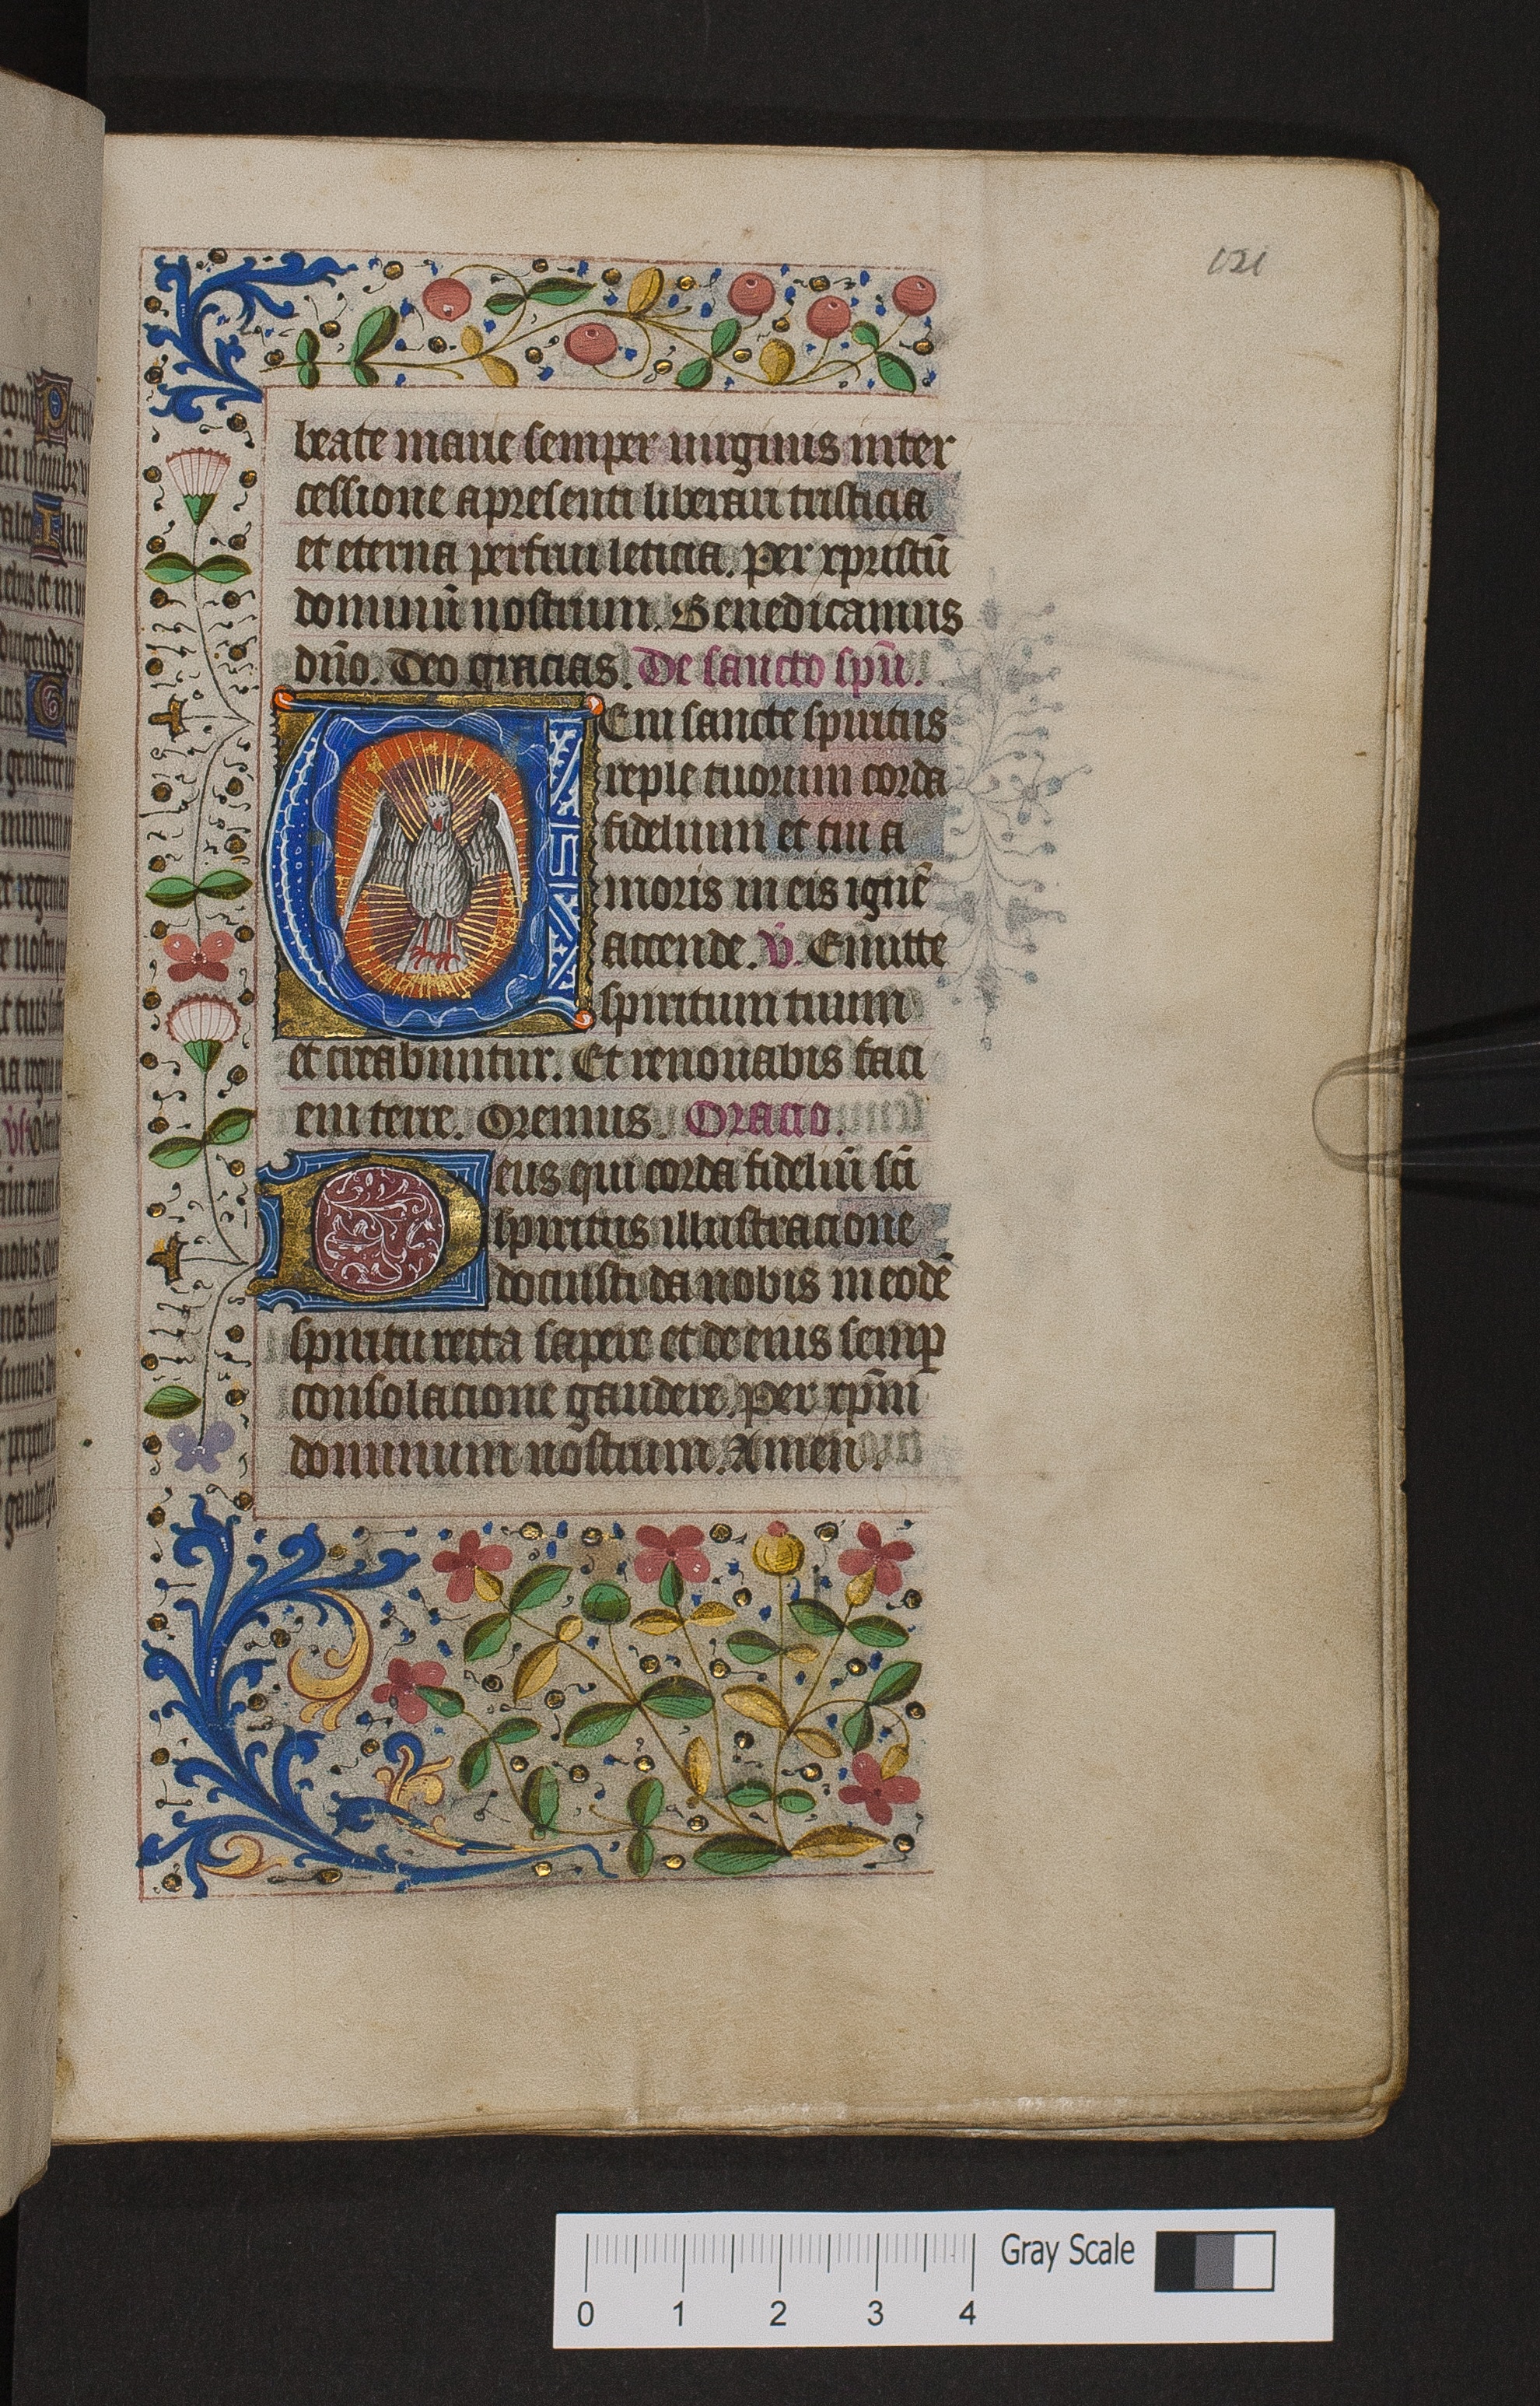 121
beate marie semper uirginis inter
cessione a presenti liberari tristicia
et eterna perfrui leticia. per xpristū
dominū nostrum. Benedicamus
dn̄o. Deo gracias. De sancto spū.
UEni sancte spiritus
reple tuorum corda
fidelium et tui a
moris in eis ignē
accende. v̄. Emitte
spiritum tuum
et creabuntur. Et renouabis faci
em terre. Oremus. Oracio.
Deus qui corda fideliū sc̄i
spiritus illustracione
docuisti da nobis in eodē
spiritu recta sapere et de eius semꝑ
consolacione gaudere. per xp̄m
dominum nostrum. Amen.
Gray Scale
0 1 2 3 4